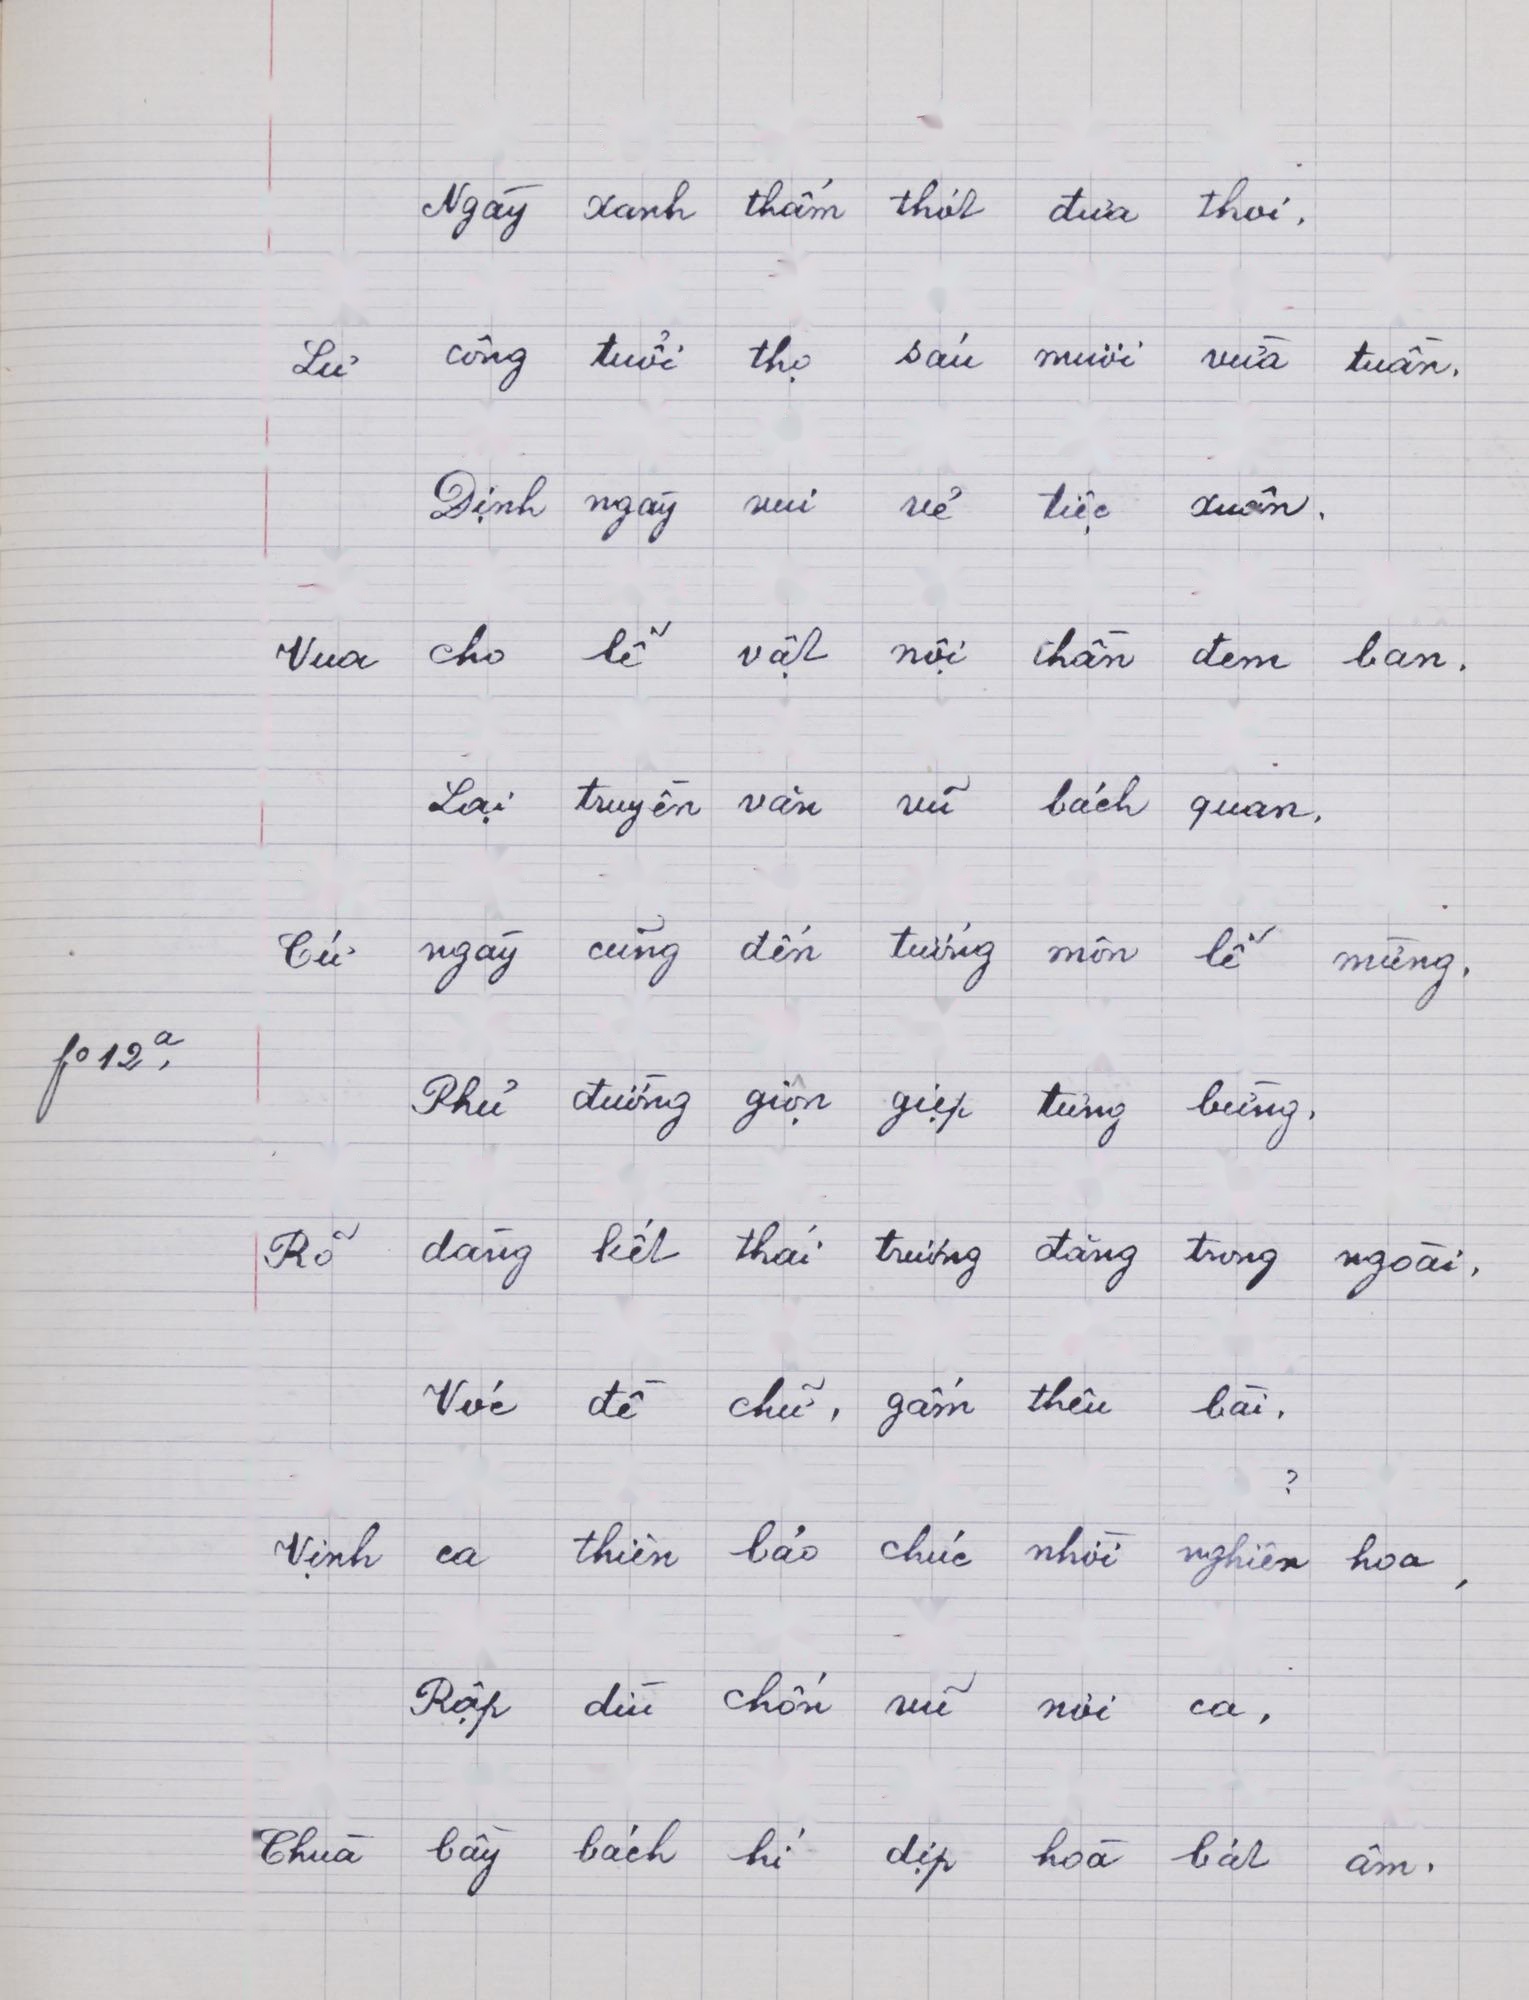 Ngày xanh thấm thót đưa thoi.
Lư công tuổi thọ sáu mươi vừa tuần.
Định ngày vui vẻ tiệc xuân.
Vua cho lễ vật nội thần đem ban.
Lại truyền văn vũ bách quan.
Cứ ngày cũng đến tướng môn lễ mừng.
fo 12a.
Phủ đường giộn giẹp tưng bừng.
Rõ dàng kết thái trương đăng trong ngoài.
Vóc đề chữ, gấm thêu bài.
?
Vịnh ca thiên bảo chúc nhời nghiên hoa,
Rập dìu chốn vũ nơi ca,
Thừa bầy bách hí dịp hoà bát âm.